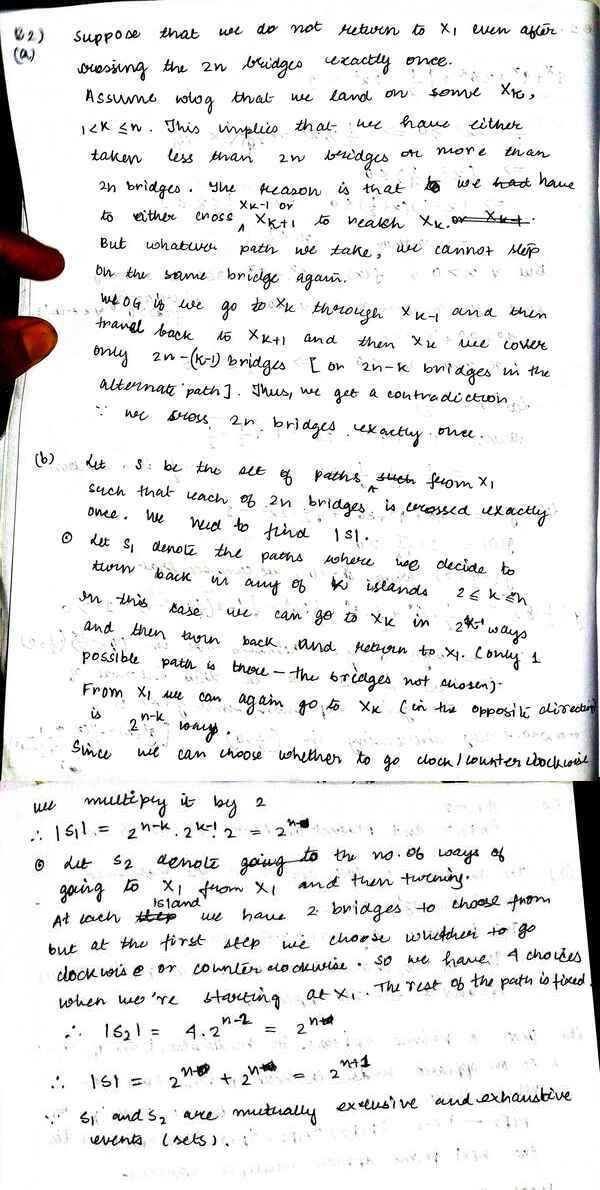 Q2) Suppose that we do not return to X1 even after
(a) crossing the 2n bridges exactly once.
Assume wlog that we land on some Xk,
1<k≤n. This implies that we have either
taken less than 2n bridges or more than
2n bridges. The reason is that we had have
to either cross Xk-1 or Xk+1 to reach Xk. or Xk-1.
But whatever path we take, we cannot step
on the same bridge again.
WLOG if we go to Xk through Xk-1 and then
travel back to Xk+1 and then Xk we cover
only 2n-(k-1) bridges [or 2n-k bridges in the
alternate path]. Thus, we get a contradiction
∵ we cross 2n bridges exactly once.
(b) Let S be the set of paths such from X1
such that each of 2n bridges is crossed exactly
once. We need to find |S|.
⊙ Let S1 denote the paths where we decide to
turn back in any of k islands 2≤k≤n
In this case we can go to Xk in 2^k-1 ways
and then turn back and return to X1. (only 1
possible path is there - the bridges not chosen).
From X1 we can again go to Xk (in the opposite direction)
is 2^n-k ways.
Since we can choose whether to go clock/counter clockwise
we multiply it by 2
∴ |S1| = 2^n-k . 2^k-1 . 2 = 2^n
⊙ Let S2 denote going to the no. of ways of
going to X1 from X1 and then turning.
At each step island we have 2 bridges to choose from
but at the first step we choose whether to go
clockwise or counter clockwise. So we have 4 choices
when we're starting at X1. The rest of the path is fixed.
∴ |S2| = 4.2^n-2 = 2^n
∴ |S| = 2^n + 2^n = 2^n+1
∵ S1 and S2 are mutually exclusive and exhaustive
events (sets).